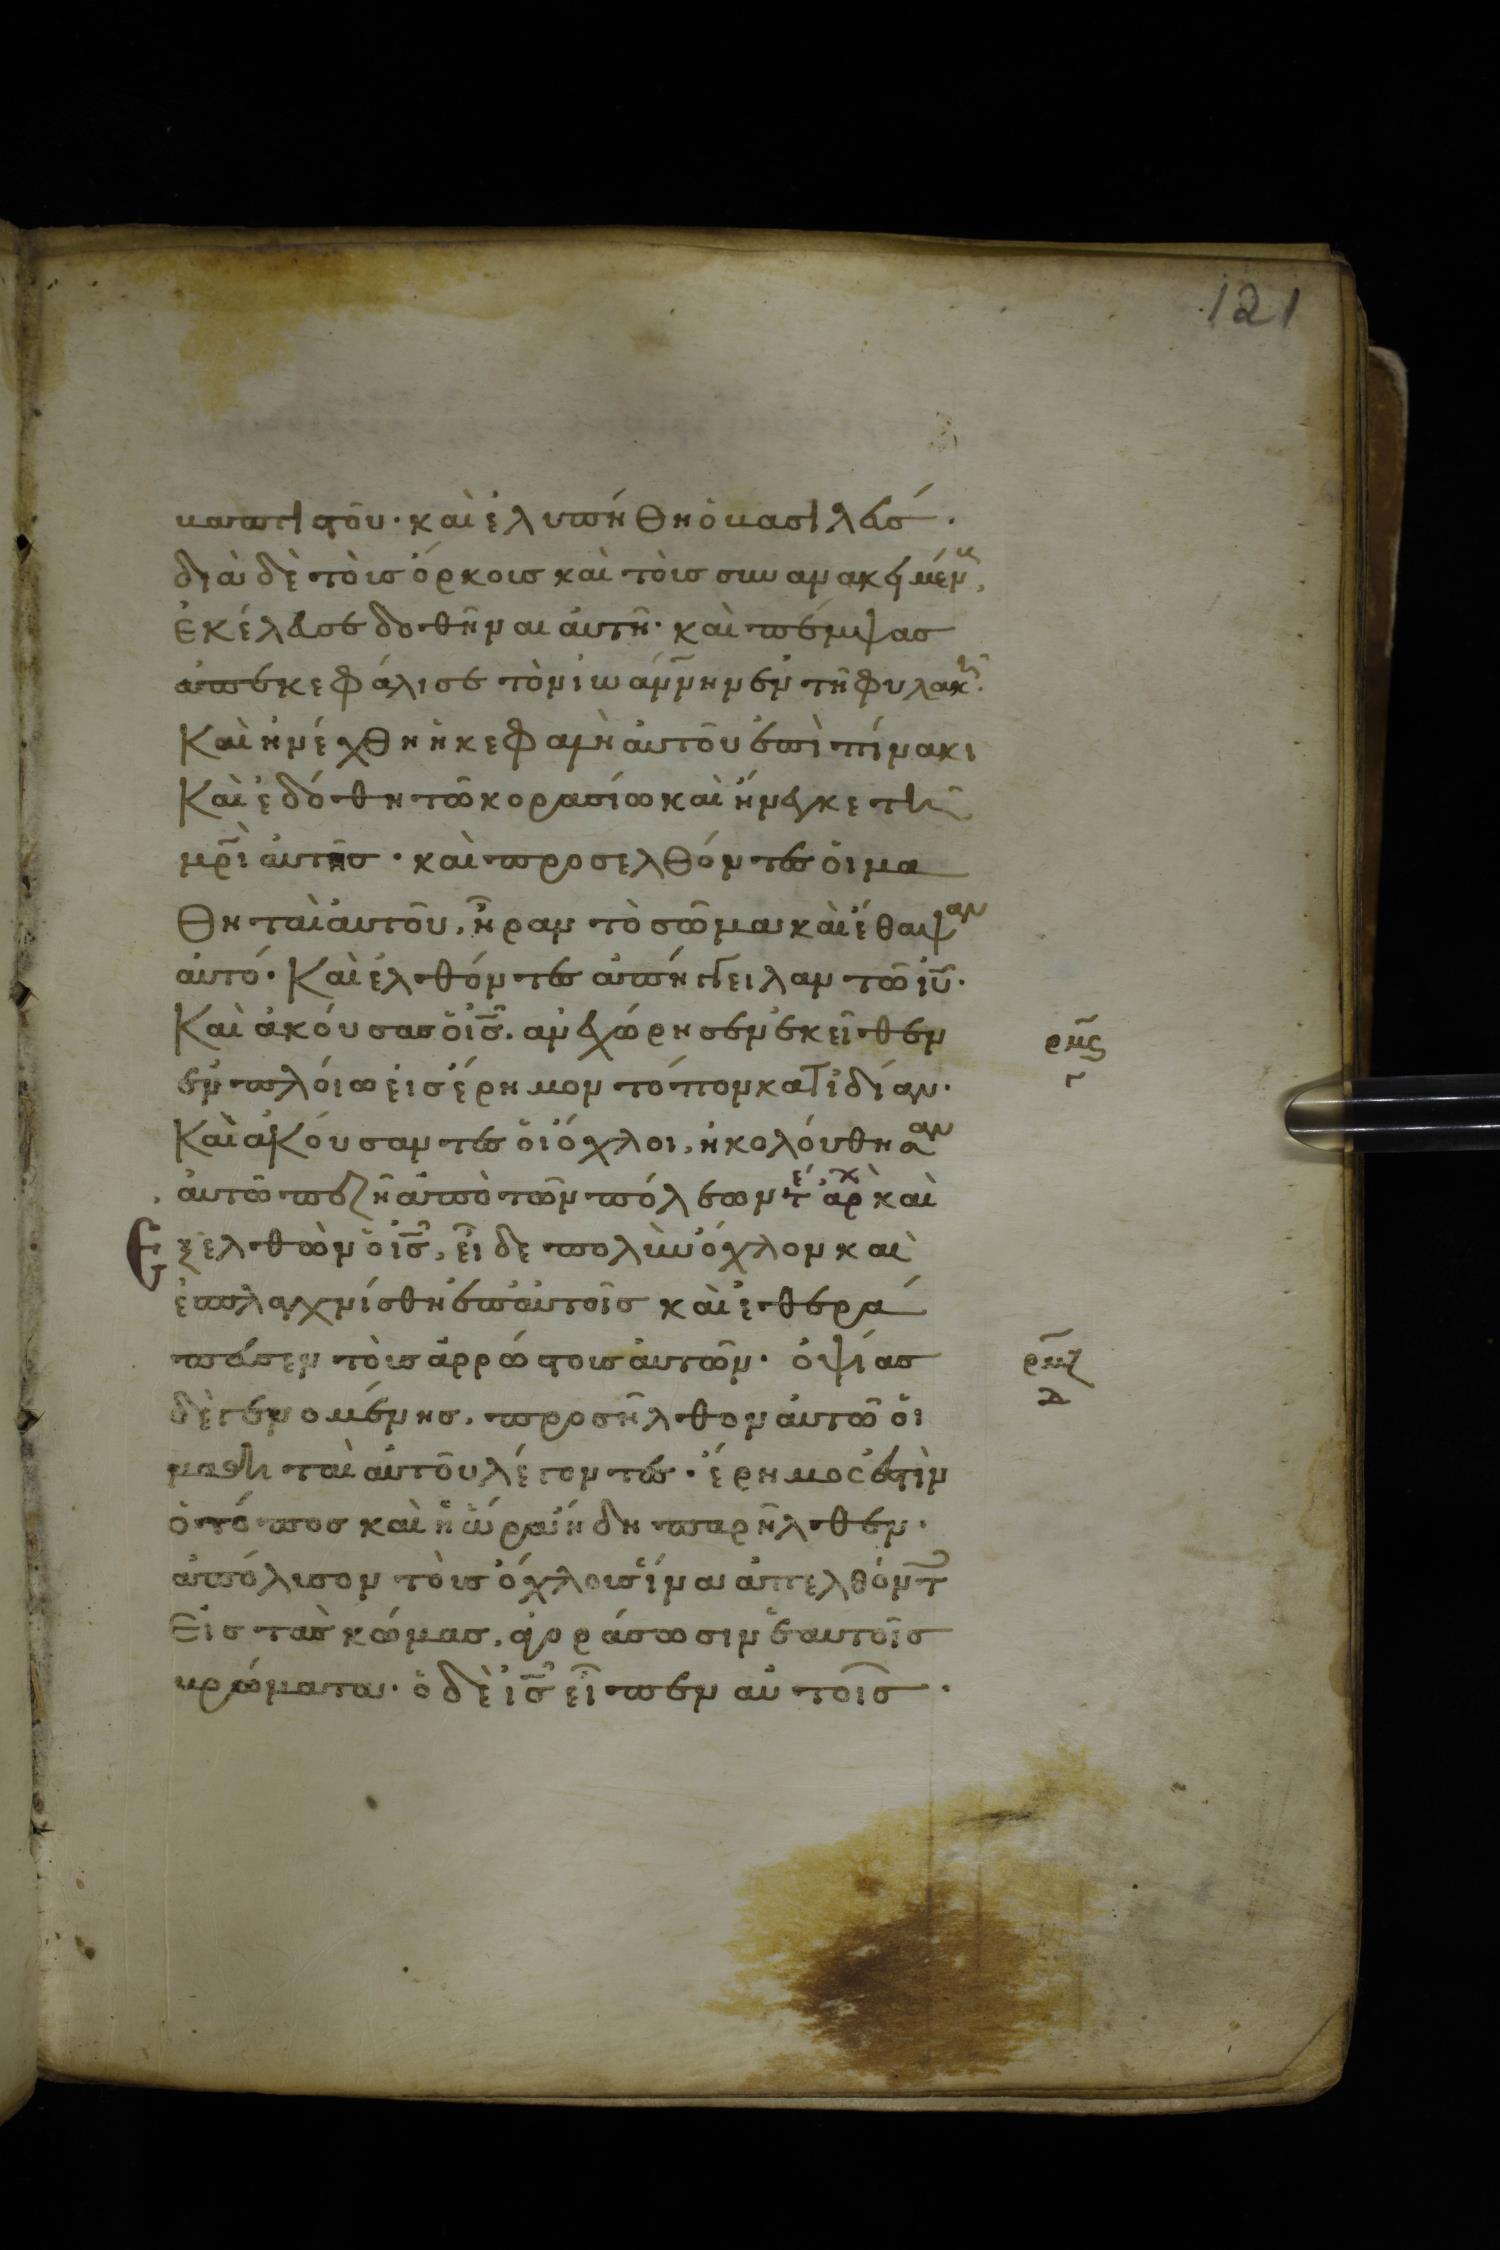 121
βαπτιστοῦ· καὶ ἐλυπήθη ὁ βασιλεύσ·
διὰ δὲ τοὺσ ὅρκουσ καὶ τοὺσ συν ανακειμέν
ἐκέλευσε δοθῆναι αὐτῆ· καὶ πέμψασ
ἀπεκεφάλισε τὸν ἰωάννην ἐν τῆ φυλακῆ.
Καὶ ἠνέχθη ἡ κεφαλὴ αὐτοῦ ἐπὶ πίνακι
Καὶ ἐδόθη τῶ κορασίω καὶ ἤνεγκε τῆ
μρὶ αὐτῆσ· καὶ προσελθόντεσ ὁι μα
θηταὶ αὐτοῦ, ἦραν τὸ σῶμα καὶ ἔθαψαν
αὐτό· Καὶ ἐλθόντεσ ἀπήγγειλαν τῶ ἰῦ·
Καὶ ἀκούσασ ὁ ἰσ. ἀνεχώρησεν ἐκεῖθεν
ρμς
γ
ἐν πλόιω ἐισ ἔρημον τόπον κατ ἰδίαν·
Καὶ ἀκούσαντεσ ὁι ὄχλοι, ἠκολούθησαν
αὐτῶ πεζῆ ἀπὸ τῶν πόλεων τέ ἀρχ καὶ
Ἐξελθὼν ὁ ἰσ, εἶδε πολὺν ὄχλον καὶ
ἐσπλαγχνίσθη ἐπ αὐτοῖσ καὶ ἐθερά
πευσεν τοὺσ ἀρρώστουσ αὐτῶν· ὀψίασ
ρμζ
δ
δὲ γενομένησ, προσῆλθον αὐτῶ ὁι
μαθηταὶ αὐτοῦ λέγοντεσ· ἔρημοσ ἐστὶν
ὁ τόποσ καὶ ἡ ὥρα ἤδη παρῆλθεν·
ἀπόλυσον τοὺσ ὄχλουσ ἵνα ἀπελθόντ
Εἰσ τὰσ κώμασ, ἀγοράσωσιν ἑαυτοῖσ
βρώματα· ὁ δὲ ἰσ εἶπεν αὐτοῖσ·